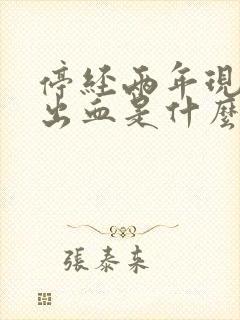 停經兩年現
出血是什麼
張泰来